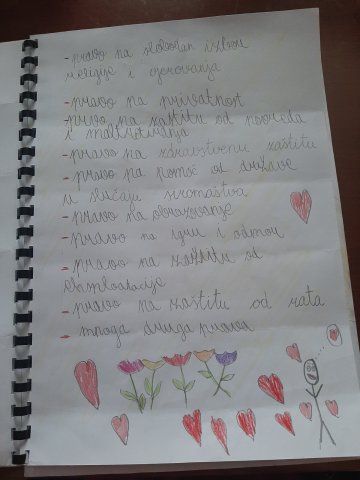 -pravo na slobodan izbor
religije i vjerovanja
-pravo na privatnost
-prvo na zaštitu od povreda
i maltretiranja
-pravo na zdravstvenu zaštitu
-pravo na pomoć od države
u slučaju siromaštva
-pravo na obrazovanje
-pravo na igru i odmor
-pravo na zaštitu od
eksploatacije
-pravo na zaštitu od rata
-mnoga druga prava